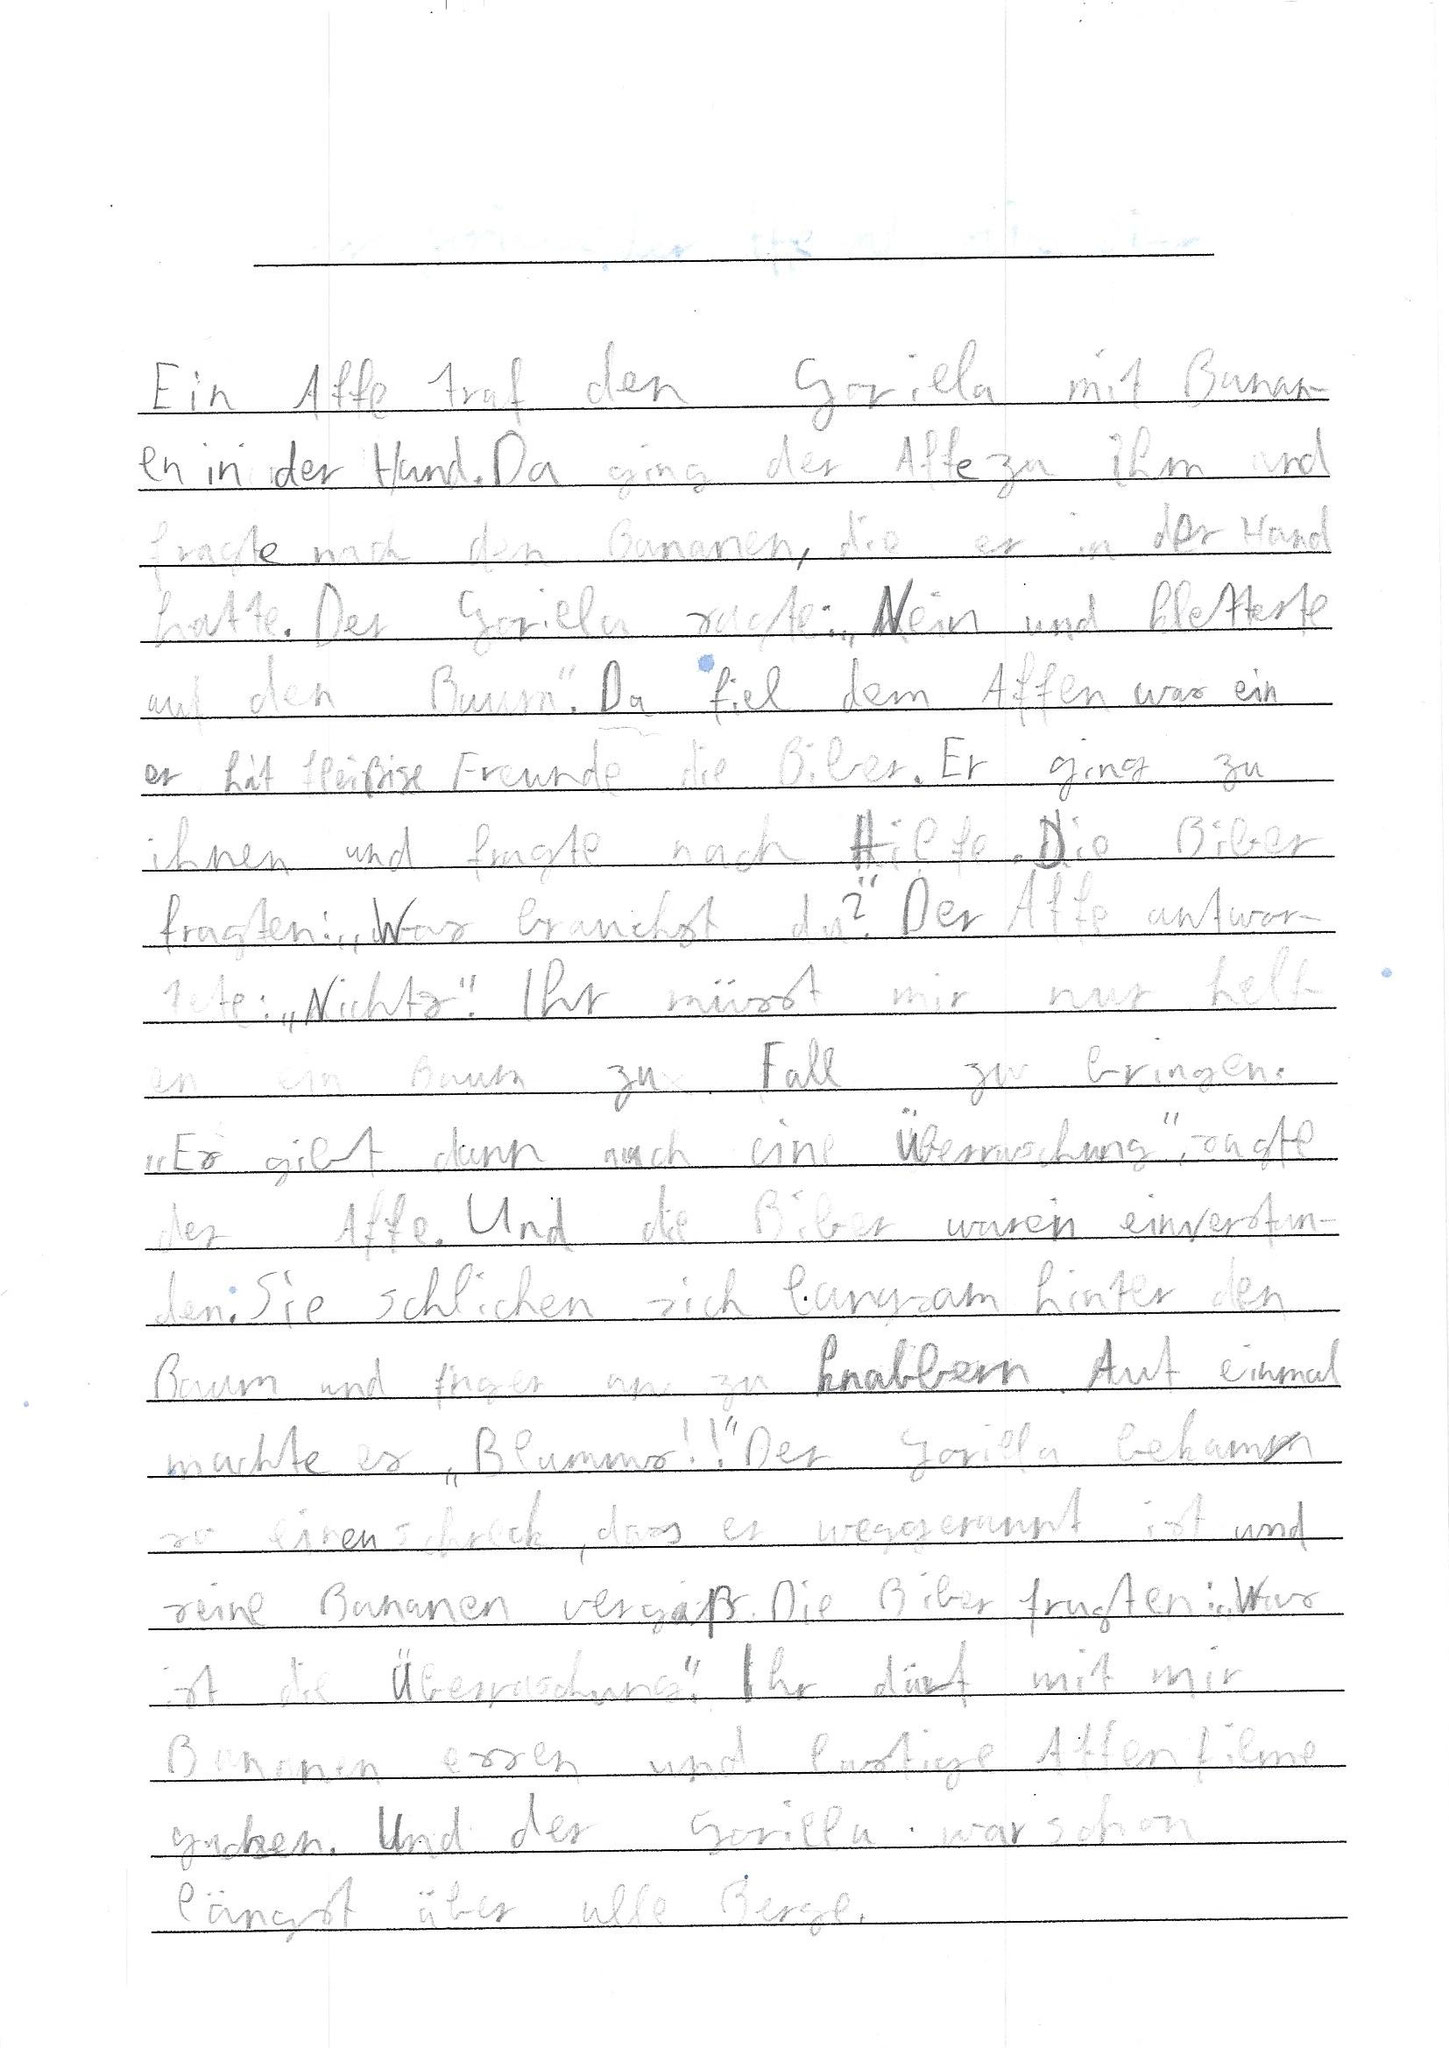 Ein Affe traf den Goriela mit Banan-
en in der Hand. Da ging der Affe zu ihm und
fragte nach den Bananen, die er in der Hand
hatte. Der Goriela sagte: „Nein und kletterte
auf den Baum“. Da fiel dem Affen was ein
er hat fleißige Freunde die Biber. Er ging zu
ihnen und fragte nach Hilfe. Die Biber
fragten: „Was brauchst du?“ Der Affe antwor-
tete: „Nichts“. Ihr müsst mir nur helf-
en ein Baum zu Fall zu bringen.
„Es gibt dann auch eine Überraschung“, sagte
der Affe. Und die Biber waren einverstan-
den. Sie schlichen sich langsam hinter den
Baum und fingen an zu knabbern. Auf einmal
machte es „Blumms!!“ Der Gorilla bekamm
so einen schreck, dass er weggerannt ist und
seine Bananen vergaß. Die Biber fragten: „Was
ist die Überraschung“. Ihr dürft mit mir
Bananen essen und lustige Affenfilme
gucken. Und der Gorilla war schon
längst über alle Berge.